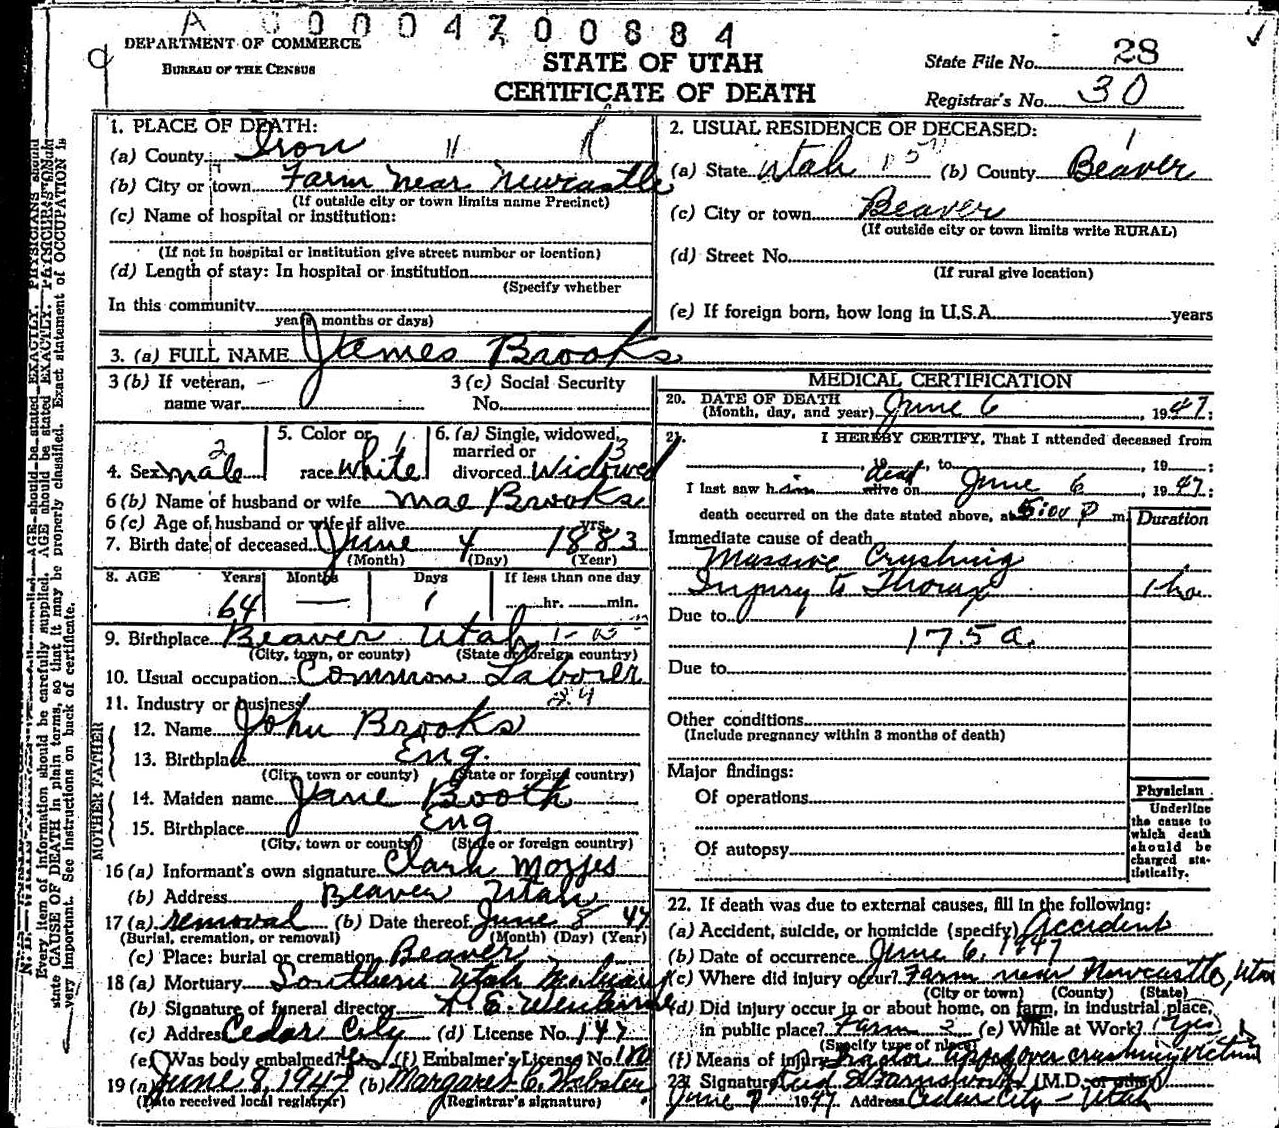 A 00004700884
DEPARTMENT OF COMMERCE
BUREAU OF THE CENSUS
STATE OF UTAH
CERTIFICATE OF DEATH
State File No. 28
Registrar's No. 30
1. PLACE OF DEATH:
(a) County Iron
(b) City or town Farm Near Newcastle
(If outside city or town limits name Precinct)
(c) Name of hospital or institution:
(If not in hospital or institution give street number or location)
(d) Length of stay: In hospital or institution
(Specify whether
In this community
years months or days)
2. USUAL RESIDENCE OF DECEASED:
(a) State Utah (b) County Beaver
(c) City or town Beaver
(If outside city or town limits write RURAL)
(d) Street No.
(If rural give location)
(e) If foreign born, how long in U.S.A. years
3. (a) FULL NAME James Brooks
3 (b) If veteran,
name war
3 (c) Social Security
No.
4. Sex male
5. Color or
race white
6. (a) Single, widowed,
married or
divorced Widowed
6 (b) Name of husband or wife Mae Brooks
6 (c) Age of husband or wife if alive yrs.
7. Birth date of deceased June 4 1883
(Month) (Day) (Year)
8. AGE Years Months Days If less than one day
64 — 1 hr. min.
9. Birthplace Beaver Utah
(City, town, or county) (State or foreign country)
10. Usual occupation Common Laborer
11. Industry or business
FATHER
12. Name John Brooks
13. Birthplace Eng.
(City, town or county) (State or foreign country)
MOTHER
14. Maiden name Jane Booth
15. Birthplace Eng
(City, town or county) (State or foreign country)
16 (a) Informant's own signature Clark
(b) Address Beaver Utah
17 (a) removal (b) Date thereof June 8 47
(Burial, cremation, or removal) (Month) (Day) (Year)
(c) Place: burial or cremation Beaver
18 (a) Mortuary Southern Utah Mortuary
(b) Signature of funeral director
(c) Address Cedar City (d) License No. 147
(e) Was body embalmed? Yes (f) Embalmer's License No.
19 (a) June 8, 1947 (b) Margaret C. Webster
(Date received local registrar) (Registrar's signature)
MEDICAL CERTIFICATION
20. DATE OF DEATH
(Month, day, and year) June 6, 1947;
21. I HEREBY CERTIFY, That I attended deceased from
, 19 , to , 19 ;
I last saw him alive on dead June 6, 1947;
death occurred on the date stated above, at 5:00 P m.
Duration
Immediate cause of death
Massive Crushing
Injury to Thorax 1 hr.
Due to
175a.
Due to
Other conditions
(Include pregnancy within 3 months of death)
Major findings:
Of operations
Of autopsy
Physician
Underline
the cause to
which death
should be
charged sta-
tistically.
22. If death was due to external causes, fill in the following:
(a) Accident, suicide, or homicide (specify) Accident
(b) Date of occurrence June 6, 1947
(c) Where did injury occur? Farm near Newcastle, Utah
(City or town) (County) (State)
(d) Did injury occur in or about home, on farm, in industrial place,
in public place? Farm (e) While at Work? Yes
(Specify type of place)
(f) Means of injury Tractor tipped over crushing victim
23. Signature Farnsworth (M.D. or other)
June 7 1947 Address Cedar City - Utah
Every item of information should be carefully supplied. AGE should be stated EXACTLY. PHYSICIANS should
state CAUSE OF DEATH in plain terms, so that it may be properly classified. Exact statement of OCCUPATION is
very important. See instructions on back of certificate.